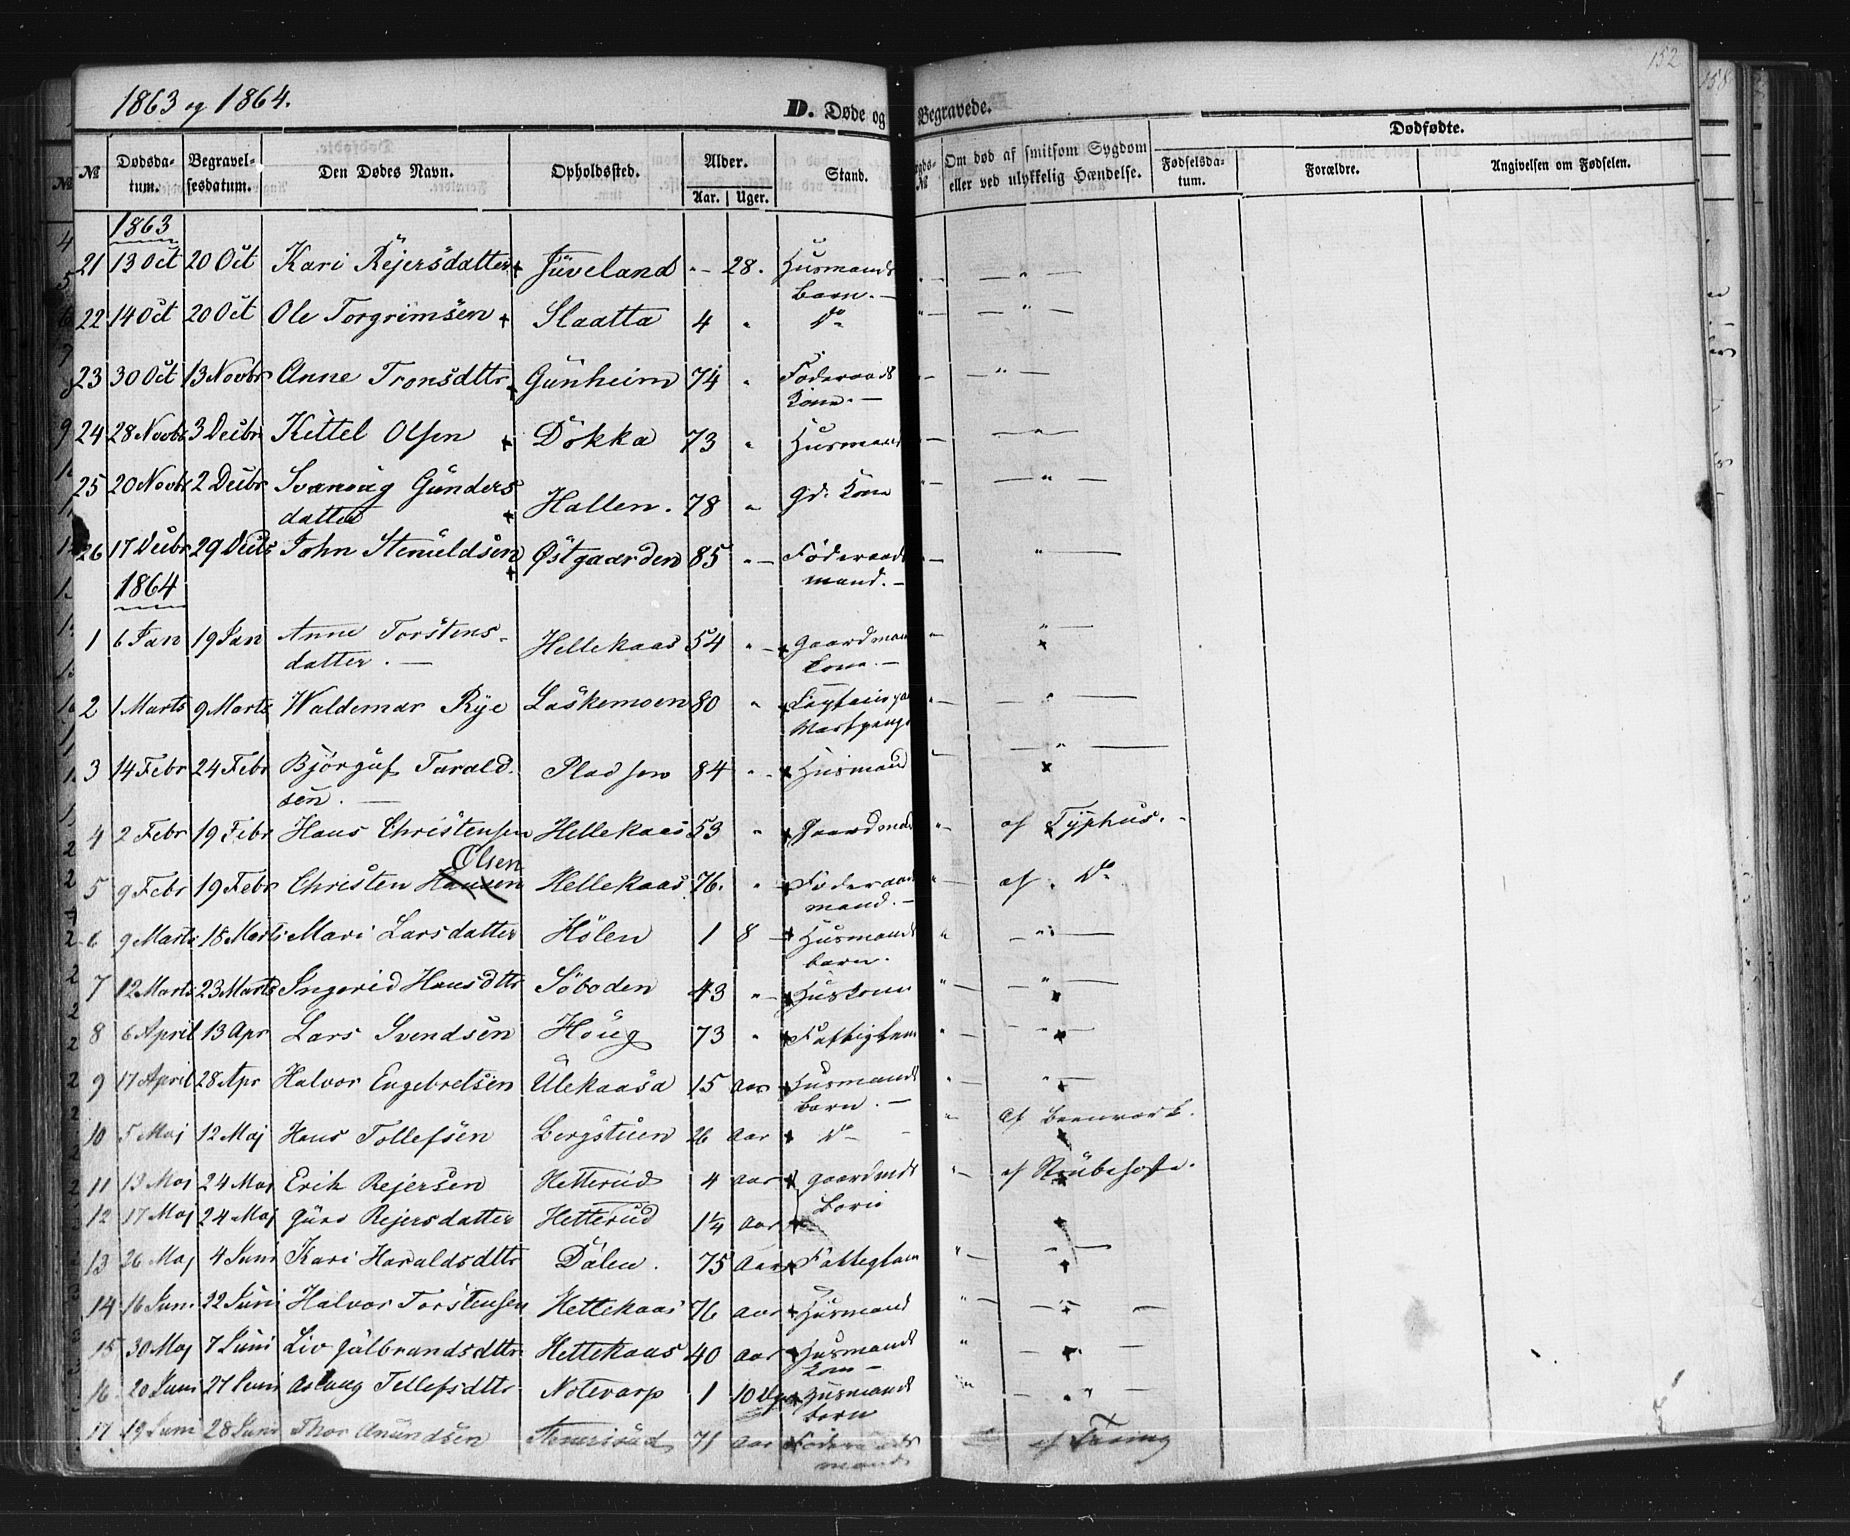 152
158
1863 og 1864.
D. Døde og Begravede.
№ Dødsda-tum. Begravel-sesdatum. Den Dødes Navn. Opholdssted. Alder. Aar. Uger. Stand. № Om død af smitsom Sygdom eller ved ulykkelig Hændelse. Dødfødte. Fødselsda-tum. Forældre. Angivelsen om Fødselen.
1863
21 13 Oct 20 Oct Kari Rejersdatter Juveland " 28. Husmands Barn. "
22 14 Oct 20 Oct Ole Torgrimsen Slaatta 4 " Do "
23 30 Oct 13 Novbr Anne Tronsdttr Gunheim 74 " Föderaads Kone. "
24 28 Novbr 3 Decbr Kittel Olsen Dokka 73 " Husmand "
25 20 Novbr 2 Decbr Svanaug Gunders datter Hallen. 78 " Gd. Kone "
26 17 Decbr 29 Decbr John Stenuldsen Østgaarden 85 " Föderaads mand. "
1864
1 6 Jan 19 Jan Anne Torstens-datter. Hellekaas 54 " Gaardmands Kone. "
2 1 Marts 9 Marts Waldemar Rye Laskemoen 80 " "
3 14 Febr 24 Febr Björguf Tarald-sen. Pladsen 84 " Husmand "
4 2 Febr 19 Febr Hans Christensen Hellekaas 53 " Gaardmand " af Typhus.
5 9 Febr 19 Febr Christen Hansen Olsen Hellekaas 76. " Föderaads mand. " af Do
6 9 Marts 18 Marts Mari Larsdatter Hölen 1 8 Husmands barn. " "
7 12 Marts 23 Marts Ingerid Hansdttr Söboden 43 " Huskone " "
8 6 April 13 Apr Lars Svendsen Höug 73 " Fattiglem " "
9 17 April 28 Apr Halvor Engebretsen Ulekaasa 15 Aar Husmands Barn. " "
10 5 Maj 12 Maj Hans Tollefsen Bergstuen 26 Aar Do "
11 13 Maj 24 Maj Erik Rejersen Hetterud 4 Aar Gaardmds Börn " af Strubehoste.
12 17 Maj 24 Maj Guro Rejersdatter Hetterud 1¼ Aar
13 26 Maj 4 Juni Kari Haraldsdttr Dalen. 75 Aar Fattiglem "
14 16 Jun. 22 Juni Halvor Torstensen Hettekaas 76 Aar Husmand " "
15 30 Maj 7 Juni Liv Gulbrandsdttr Hettekaas 40 Aar Husmands Kone "
16 20 Juni 27 Juni Aslaug Tellefsdttr Notevarp 1 10 Ug Husmands barn "
17 19 Juni 28 Juni Thor Anundsen 71 Aar Föderaads mand af Tæring